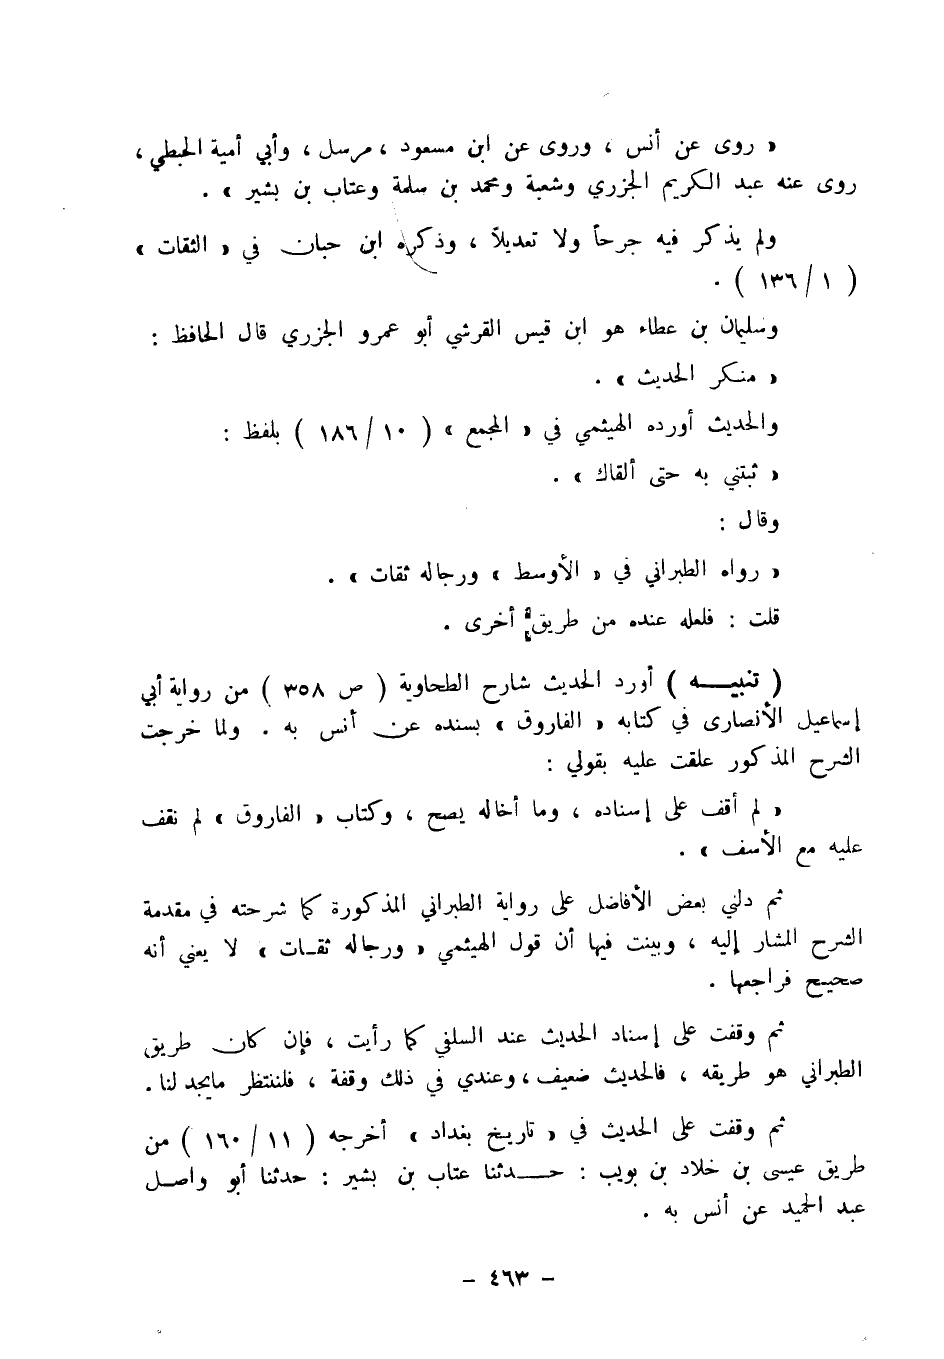 « روى عن أنس ، وروى عن ابن مسعود ، مرسل ، وأبي أمية الحبطي ،
روى عنه عبد الكريم الجزري وشعبة ومحمد بن سلمة وعتاب بن بشير » .
ولم يذكر فيه جرحاً ولا تعديلاً ، وذكره ابن حبان في « الثقات »
( ١ / ١٣٦ ) .
وسليمان بن عطاء هو ابن قيس القرشي أبو عمرو الجزري قال الحافظ :
« منكر الحديث » .
والحديث أورده الهيثمي في « المجمع » ( ١٠ / ١٨٦ ) بلفظ :
« ثبتني به حتى ألقاك » .
وقال :
« رواه الطبراني في « الأوسط » ورجاله ثقات » .
قلت : فلعله عنده من طريق أخرى .
( تنبيـــه ) أورد الحديث شارح الطحاوية ( ص ٣٥٨ ) من رواية أبي
إسماعيل الأنصارى في كتابه « الفاروق » بسنده عن أنس به . ولما خرجت
الشرح المذكور علقت عليه بقولي :
« لم أقف على إسناده ، وما أخاله يصح ، وكتاب « الفاروق » لم نقف
عليه مع الأسف » .
ثم دلني بعض الأفاضل على رواية الطبراني المذكورة كما شرحته في مقدمة
الشرح المشار إليه ، وبينت فيها أن قول الهيثمي « ورجاله ثقـات » لا يعني أنه
صحيح فراجعها .
ثم وقفت على إسناد الحديث عند السلفي كما رأيت ، فإن كان طريق
الطبراني هو طريقه ، فالحديث ضعيف ، وعندي في ذلك وقفة ، فلننتظر مايجد لنا .
ثم وقفت على الحديث في « تاريخ بغداد » أخرجه ( ١١ / ١٦٠ ) من
طريق عيسى بن خلاد بن بويب : حـــدثنا عتاب بن بشير : حدثنا أبو واصـل
عبد الحميد عن أنس به .
- ٤٦٣ -